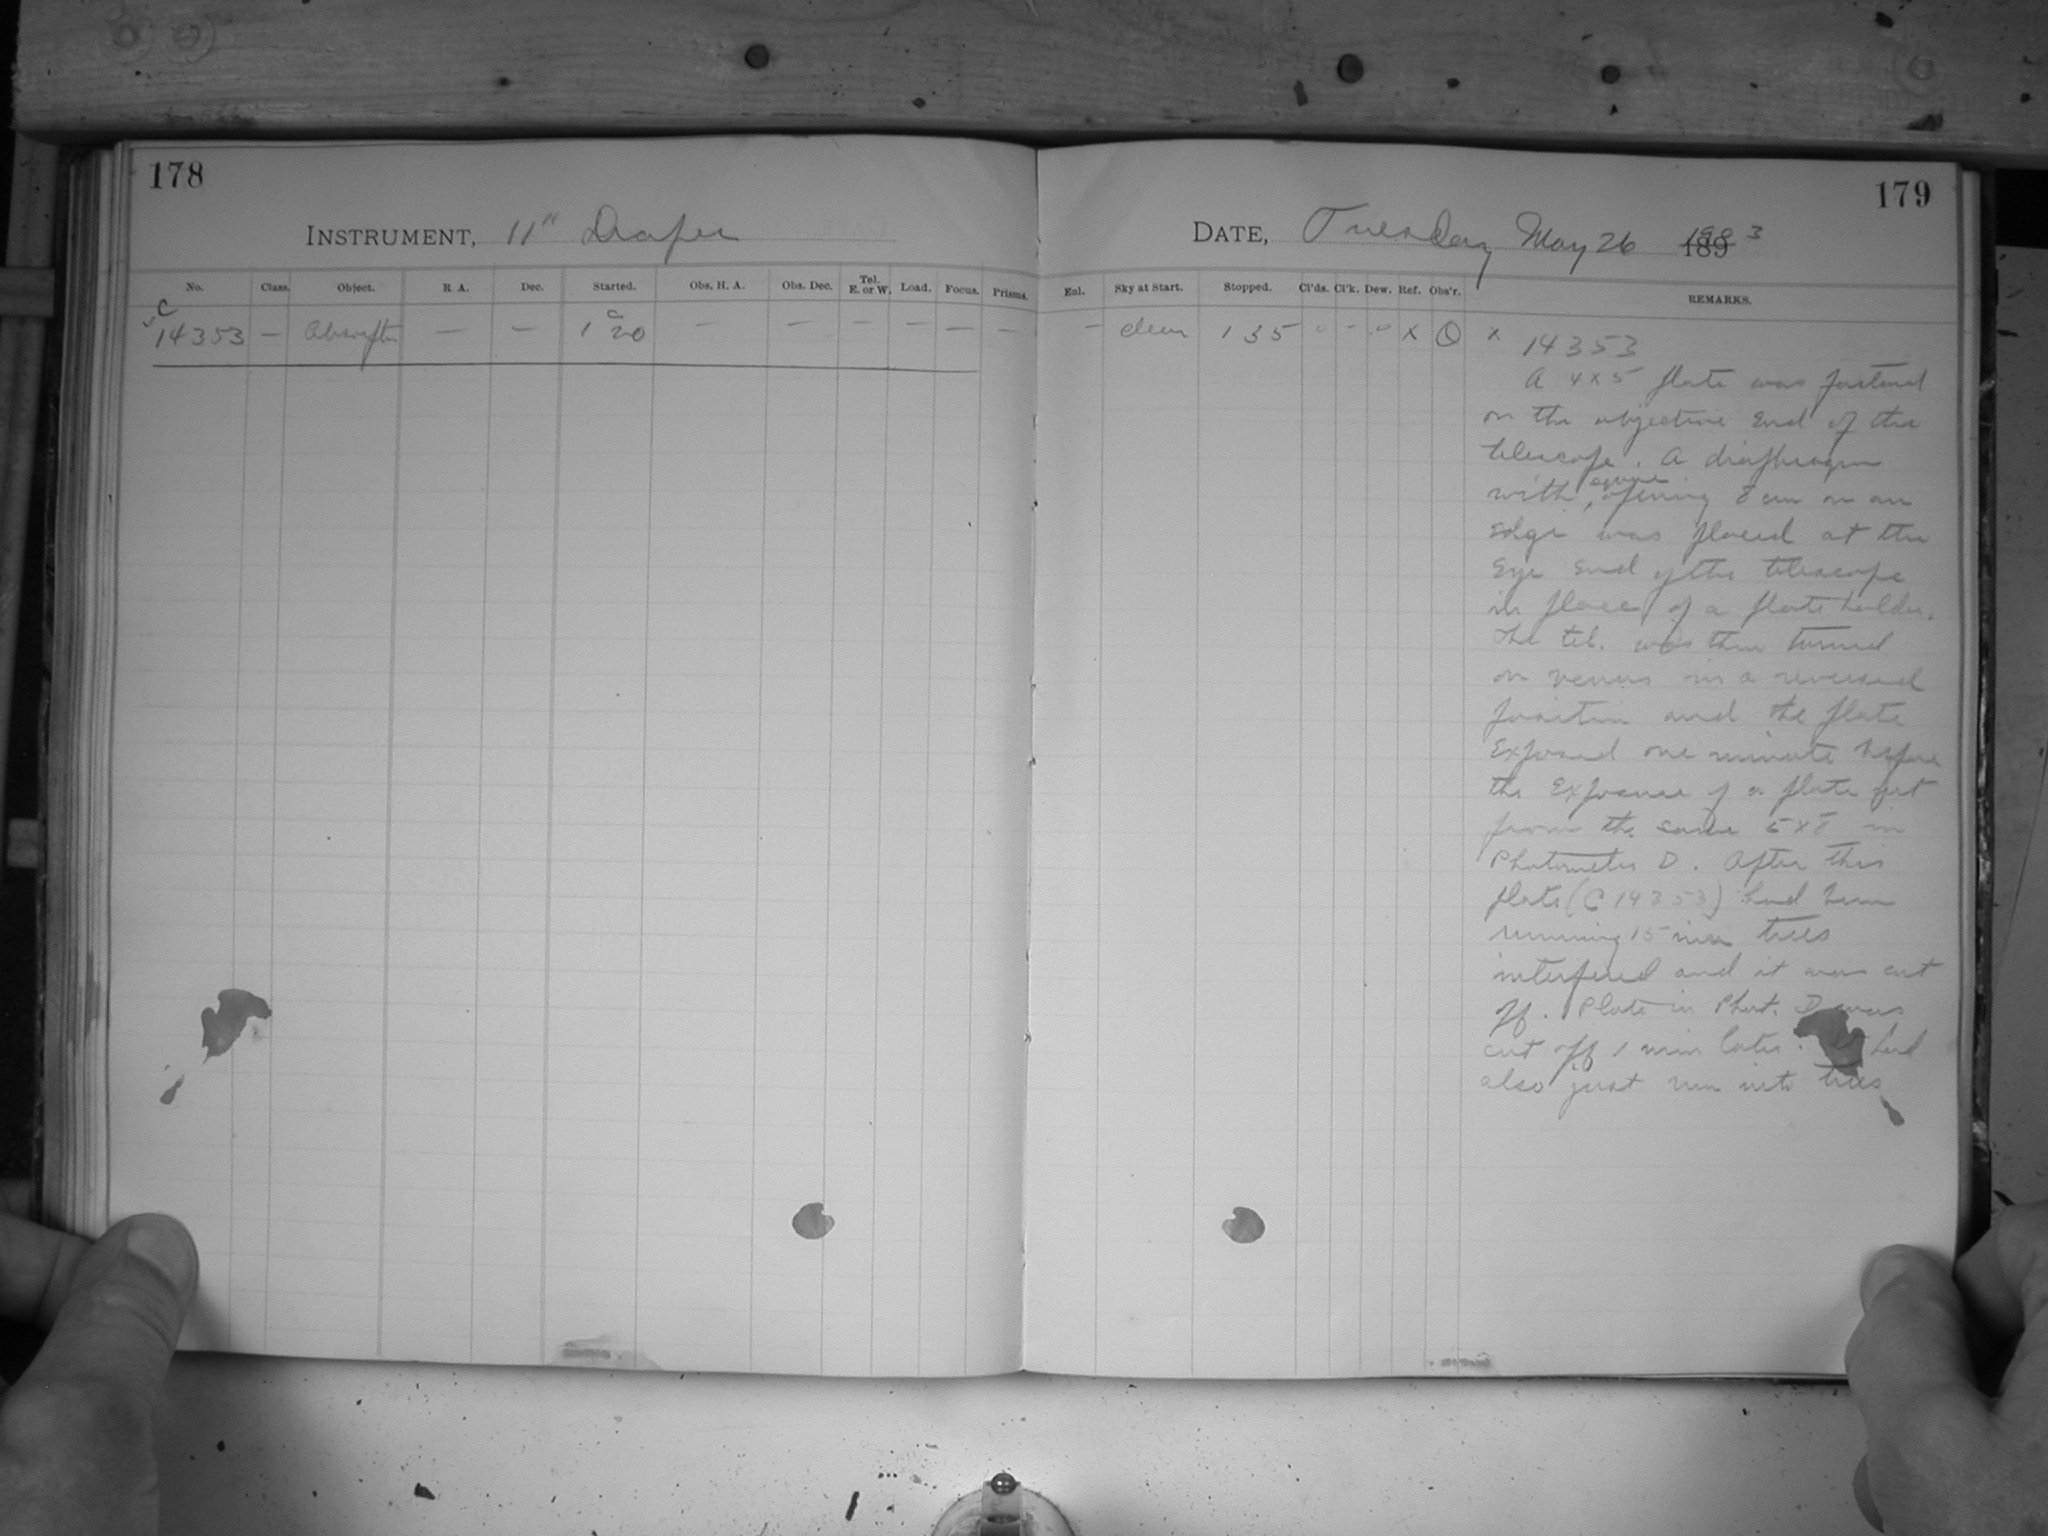 178
INSTRUMENT, 11" Draper
No. Class. Object. R. A. Dec. Started. Obs. H. A. Obs. Dec. Tel. E. or W. Load. Focus. Prisms.
C
14353 — Absorption — — 1 20 — — — — — —
179
DATE, Tuesday May 26 189 1903
Enl. Sky at Start. Stopped. Cl'ds. Cl'k. Dew. Ref. Obs'r. REMARKS.
— clear 1 35 0 - 0 x
x 14353
A 4x5 plate was fastened
on the objective end of the
telescope. A diaphragm
with square opening 8 cm on an
edge was placed at the
Eye end of the telescope
in place of a plate holder.
The tel. was then turned
on venus in a reversed
position and the plate
Exposed one minute before
the Exposure of a plate cut
from the same 5x8 in
Photometer D. After this
plate (C 14353) had been
running 15 min trees
interfered and it was cut
off. Plate in Phot. D was
cut off 1 min later. It had
also just run into trees